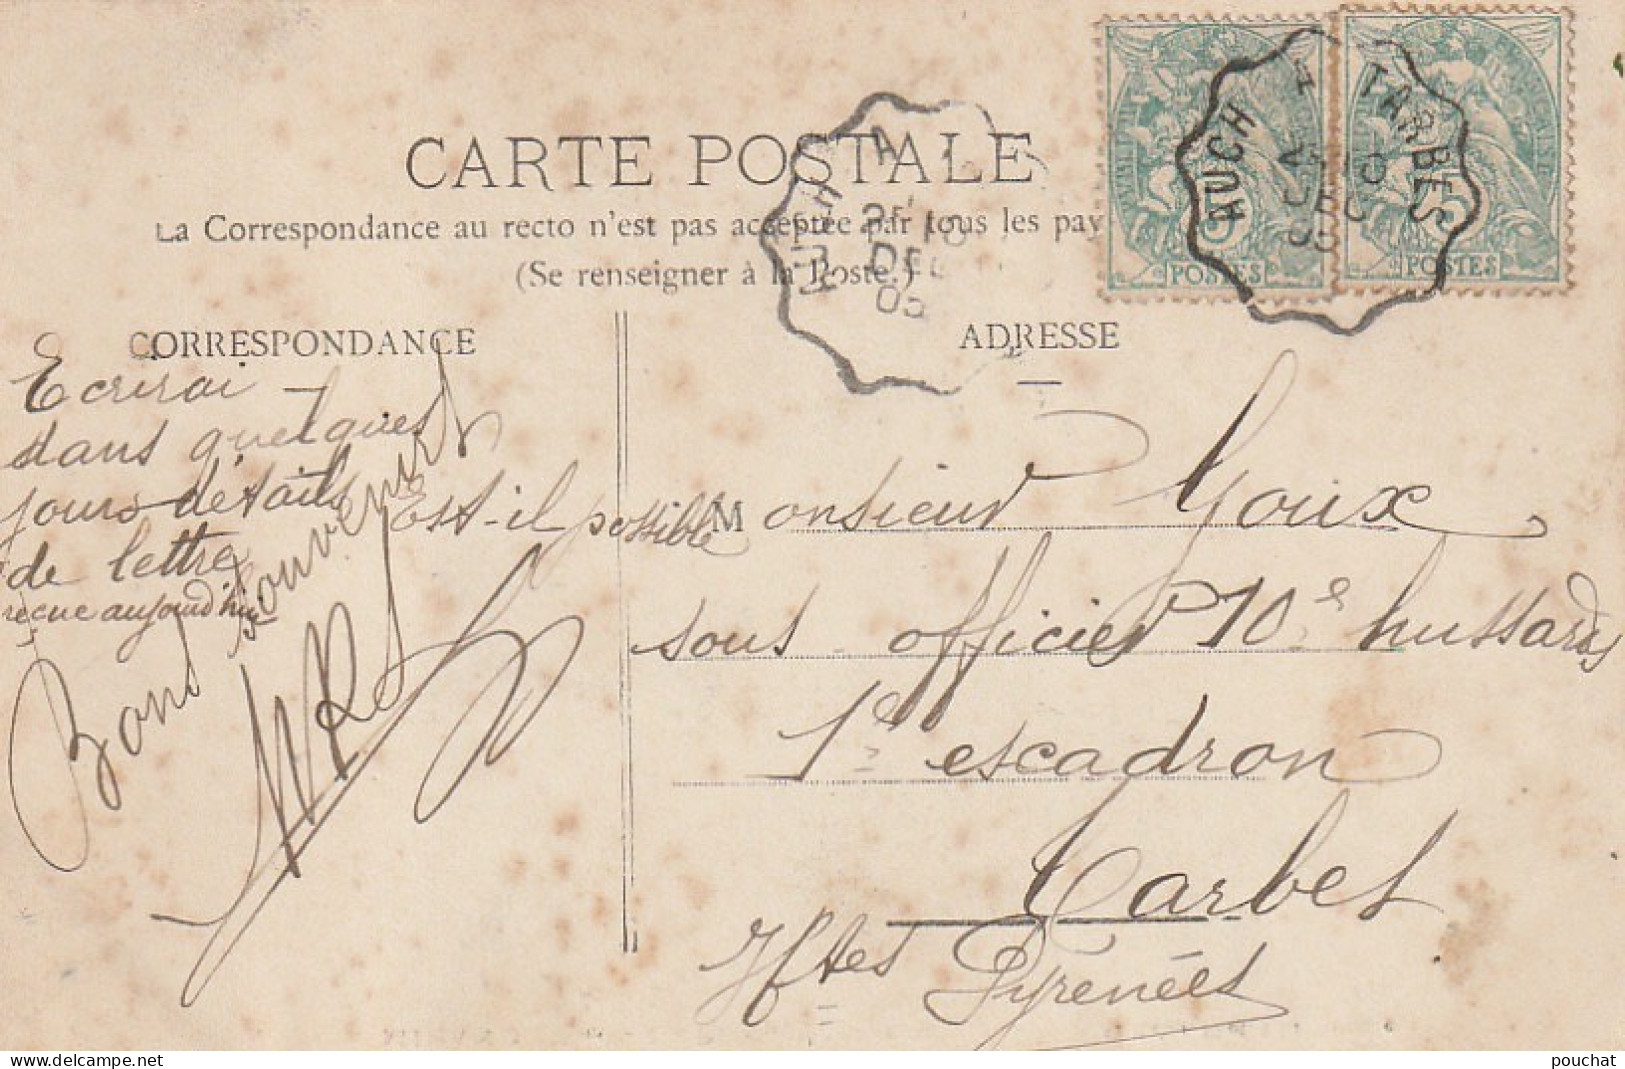 CARTE POSTALE
La Correspondance au recto n'est pas acceptée par tous les pay
(Se renseigner à la Poste.)
CORRESPONDANCE
Ecrirai -
dans quelques
jours détails
de lettre
reçue aujourd'hui
Est-il possible
Bons Souvenirs
ADRESSE
Monsieur Goux
sous officier 10e hussards
1er escadron
Tarbes
Htes Pyrénées
AUCH A TARBES
2E 10
DEC
05
AUCH A
2E 10
DEC
05
5
POSTES
5
POSTES
delcampe.net
pouchat